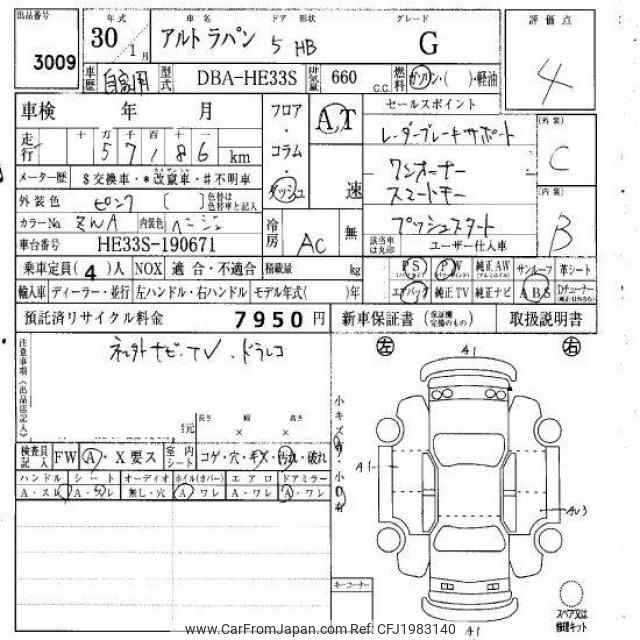 出品番号
3009
年式
30 1月
車名
アルトラパン
ドア 形状
5 HB
グレード
G
評価点
4
車歴
自家用
型式
DBA-HE33S
排気量
660 C.C.
燃料
ガソリン・( )・軽油
車検 年 月
走行
十 万 千 百 十 一
5 7 1 8 6 km
メーター歴
$交換車・*改竄車・#不明車
外装色
ピンク ( )
色替は色替車と記入
カラーNo.
内装色
ベージュ
車台番号
HE33S-190671
フロア・コラム・ダッシュ
A,T
速
冷房
AC
無
セールスポイント
レーダーブレーキサポート
ワンオーナー
スマートキー
プッシュスタート
該当車は丸印
ユーザー仕入車
(外装)
C
(内装)
B
乗車定員(4)人
NOX 適合・不適合
積載量 kg
PS
PW
純正AW
サンルーフ
革シート
輸入車
ディーラー・並行
左ハンドル・右ハンドル
モデル年式( )年
エアバッグ
純正TV
純正ナビ
ABS
Dチューナー
預託済リサイクル料金
7950円
新車保証書
取扱説明書
注意事項(出品店記入)
ナビ・TV、ドラレコ
長さ 幅 高さ
× ×
検査員記入
FW
A・X要ス
室内シート
コゲ・穴・キズ・汚れ・破れ
ハンドル
シート
オーディオ
ホイル(カバー)
エアロ
ドアミラー
A・スレ
無し・穴
A・ワレ
A・ワレ
A・ワレ
左
右
A1
A1
A1
キーコーナー
スペア又は修理キット
www.CarFromJapan.com Ref: CFJ1983140